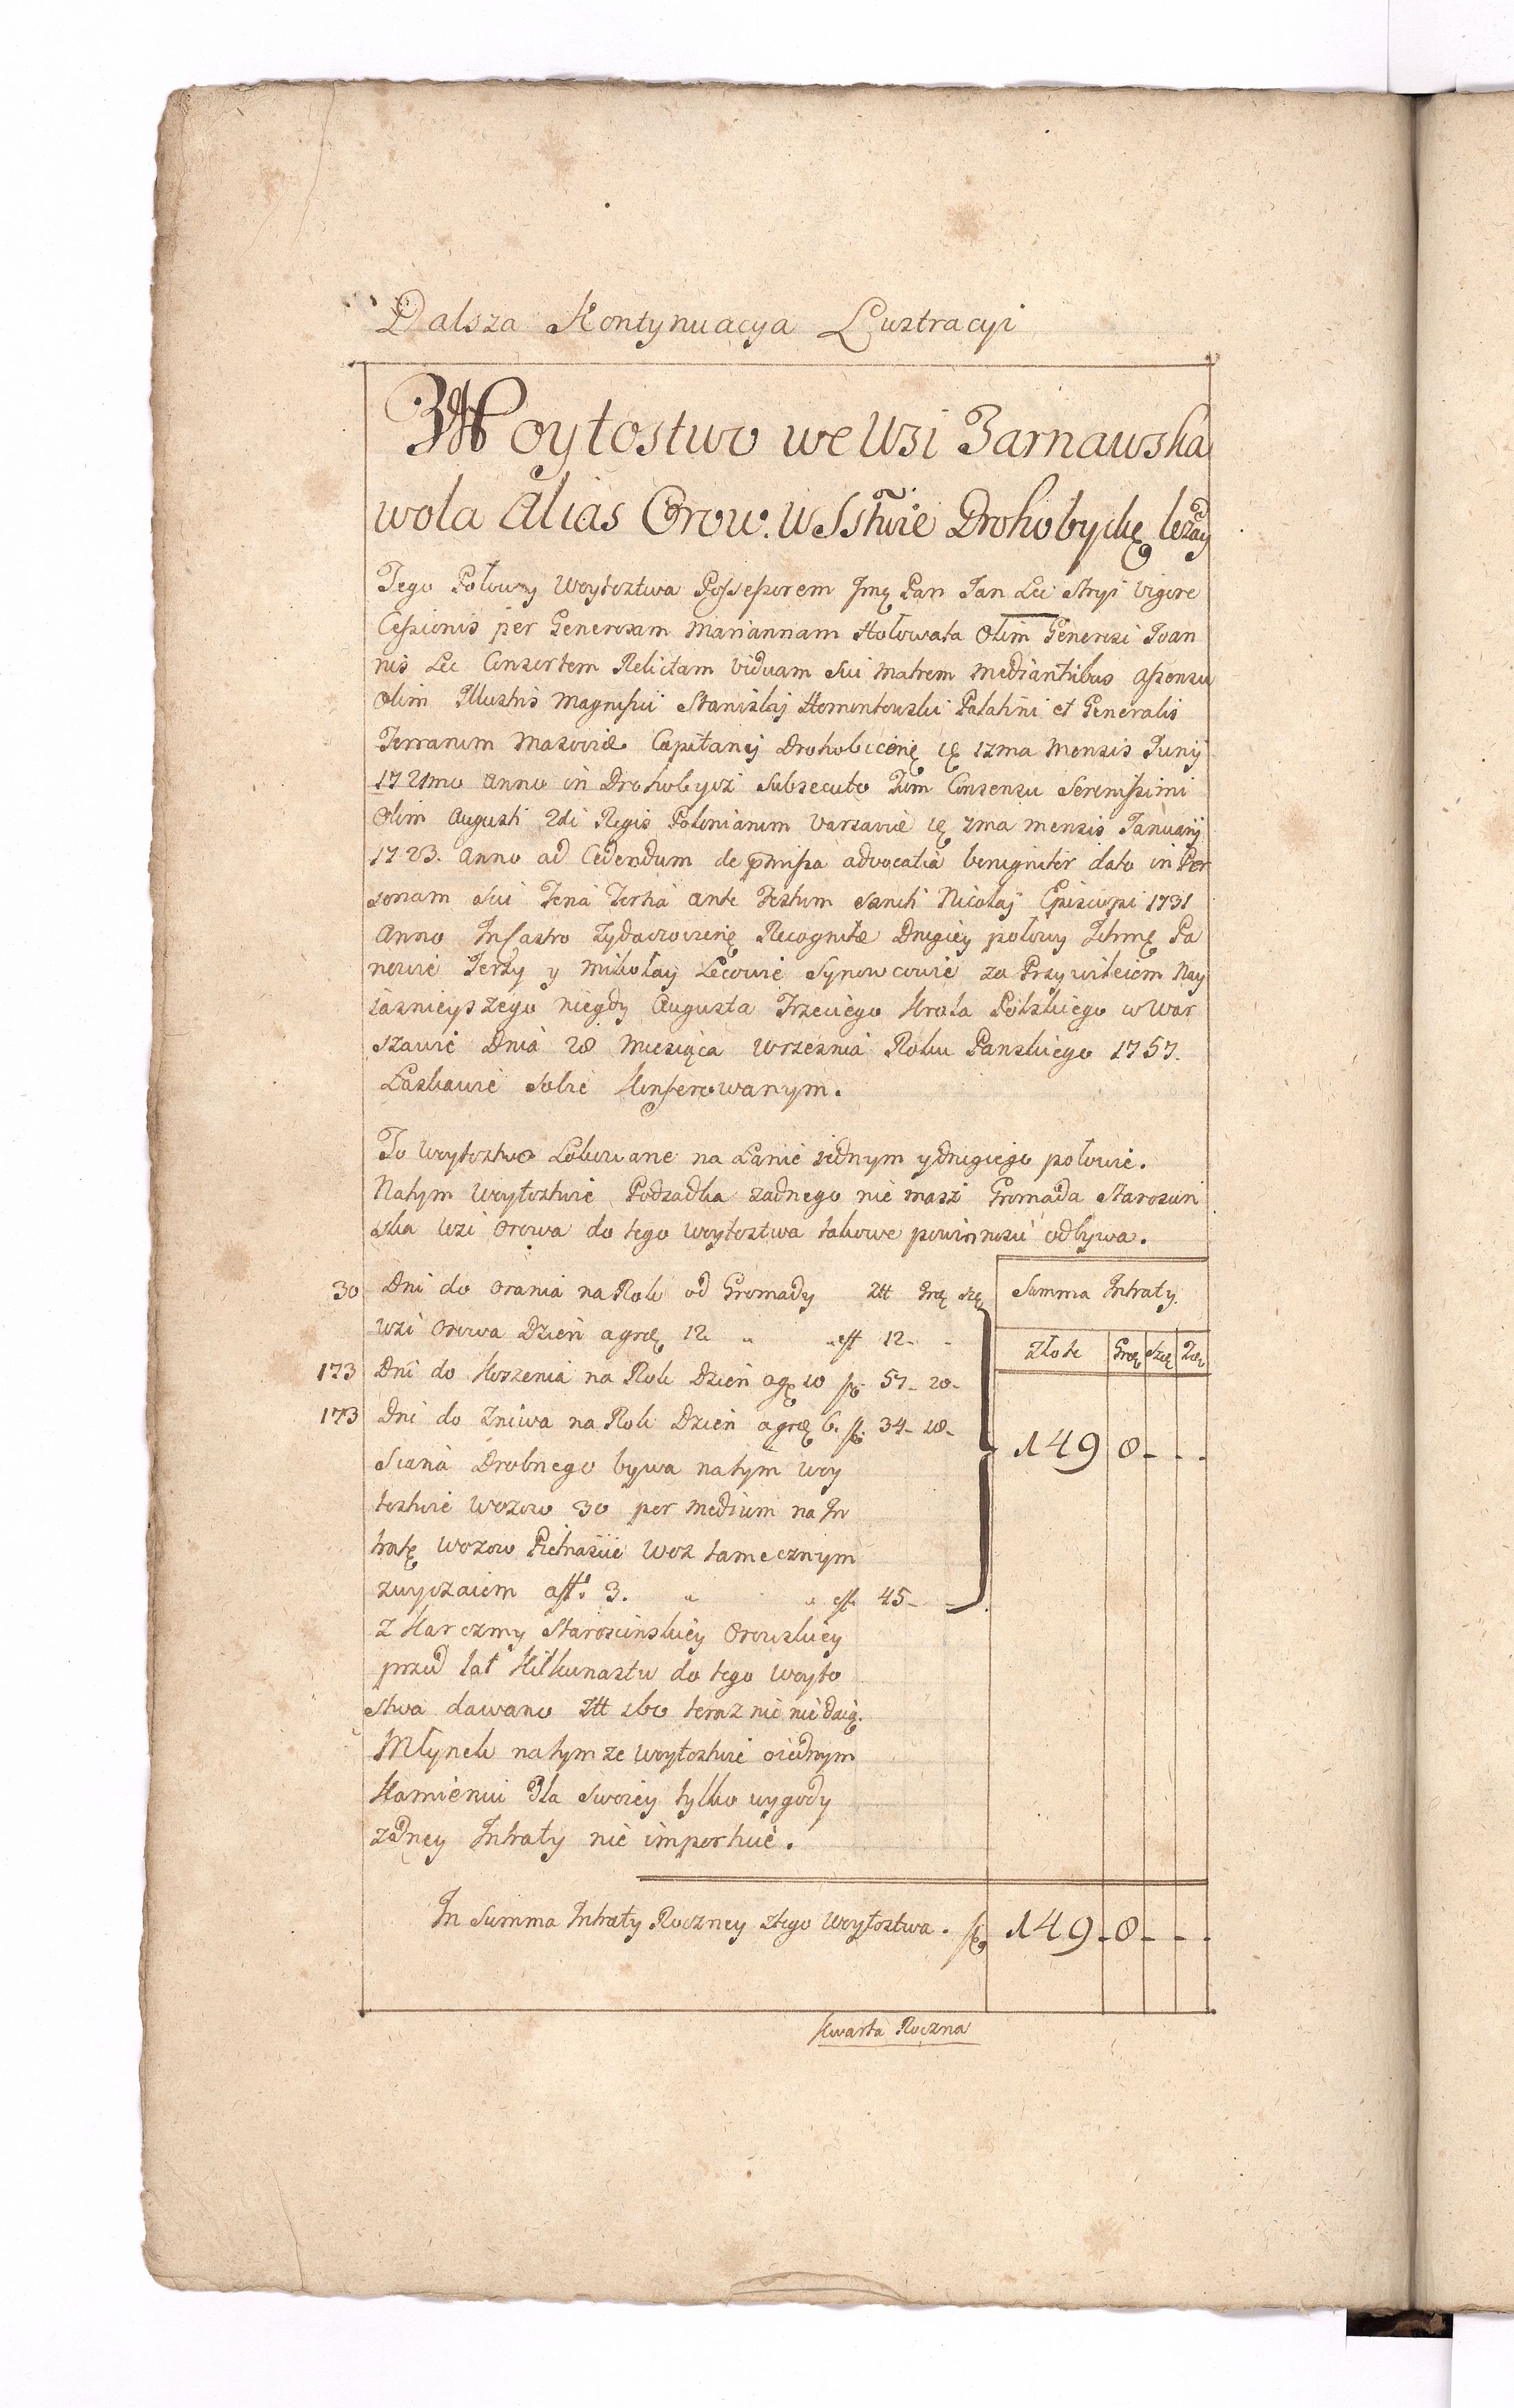 Dalsza Kontynuacya Lustracyi
Woytostwo we Wsi Tarnawska
wola Alias Orow. W Sstwie Drohobyckę leżący
Tego Połowy Woytoztwa Possessorem Jmę Pan Jan Lec Stryi vigore
Cessionis per Generosam Mariannam Hołowata Olim Generosi Joan
nis Lec Consortem Relictam viduam sui Matrem mediantibus assensu
Olim Illustris Magnifici Stanislaj Homentowski Palatini et Generalis
Terrarum Masoviæ Capitanej Drohobicenę ię 12ma Mensis Junij
1721mo Anno in Drohobyczi Subsecuto Tum Consensu Serenissimi
Olim Augusti 2di Regis Poloniarum Varsaviæ ię 2ma mensis Januarij
1723. Anno ad Cedendum de p̄missa advocatia benigniter dato in Per
sonam sui Feria Tertia ante Festum Sancti Nicolaj Episcopi 1731
Anno In Castro Zydaczoviensię Recognitæ Drugiey połowy Ichmę Pa
nowie Jerzy y Mikołay Lecowie Synowcowie za Przywileiem Nay
iasnieyszego niegdy Augusta Trzeciego Krola Polskiego w War
szawie Dnia 28 Miesiąca Września Roku Panskiego 1757.
Laskawie Sobie Konferowanym.
To Woytoztwo Lokowane na Łanie iednym y drugiego połowie.
Natym Woytoztwie Podsadka zadnego nie masz Gromada Staroscin
ska Wsi Orowa do tego Woytostwa takowe powinnosci odbywa.
30 Dni do Orania na Roli od Gromady Złł Grę Szę
Wsi Orowa Dzien a grę 12 " eff 12 - -
173 Dni do Koszenia na Roli Dzien a gę 10 fl. 57 - 20 -
173 Dni do Zniwa na Roli Dzien a grę 6. fl. 34 - 18 -
Siana Drobnego bywa natym Woy
tostwie Wozow 30 per medium na In
tratę wozow Pietnascie Woz tamecznym
zwyczaiem a fł. 3. " " eff 45 - -
Summa Intraty.
Złote Grę Szę Dę
149 8 - - -
Z Karczmy Staroscinskiey Orowskiey
przed lat Kilkunastu do tego Woyto
stwa dawano Złł 160 teraz nic nie daią.
Młynek natymze Woytoztwie o iednym
Kamieniu Dla swoiey tylko wygody
zadney Intraty nie importuie.
In Summa Intraty Roczney z tego Woytostwa. fl. 149 - 8 - - -
Kwarta Roczna